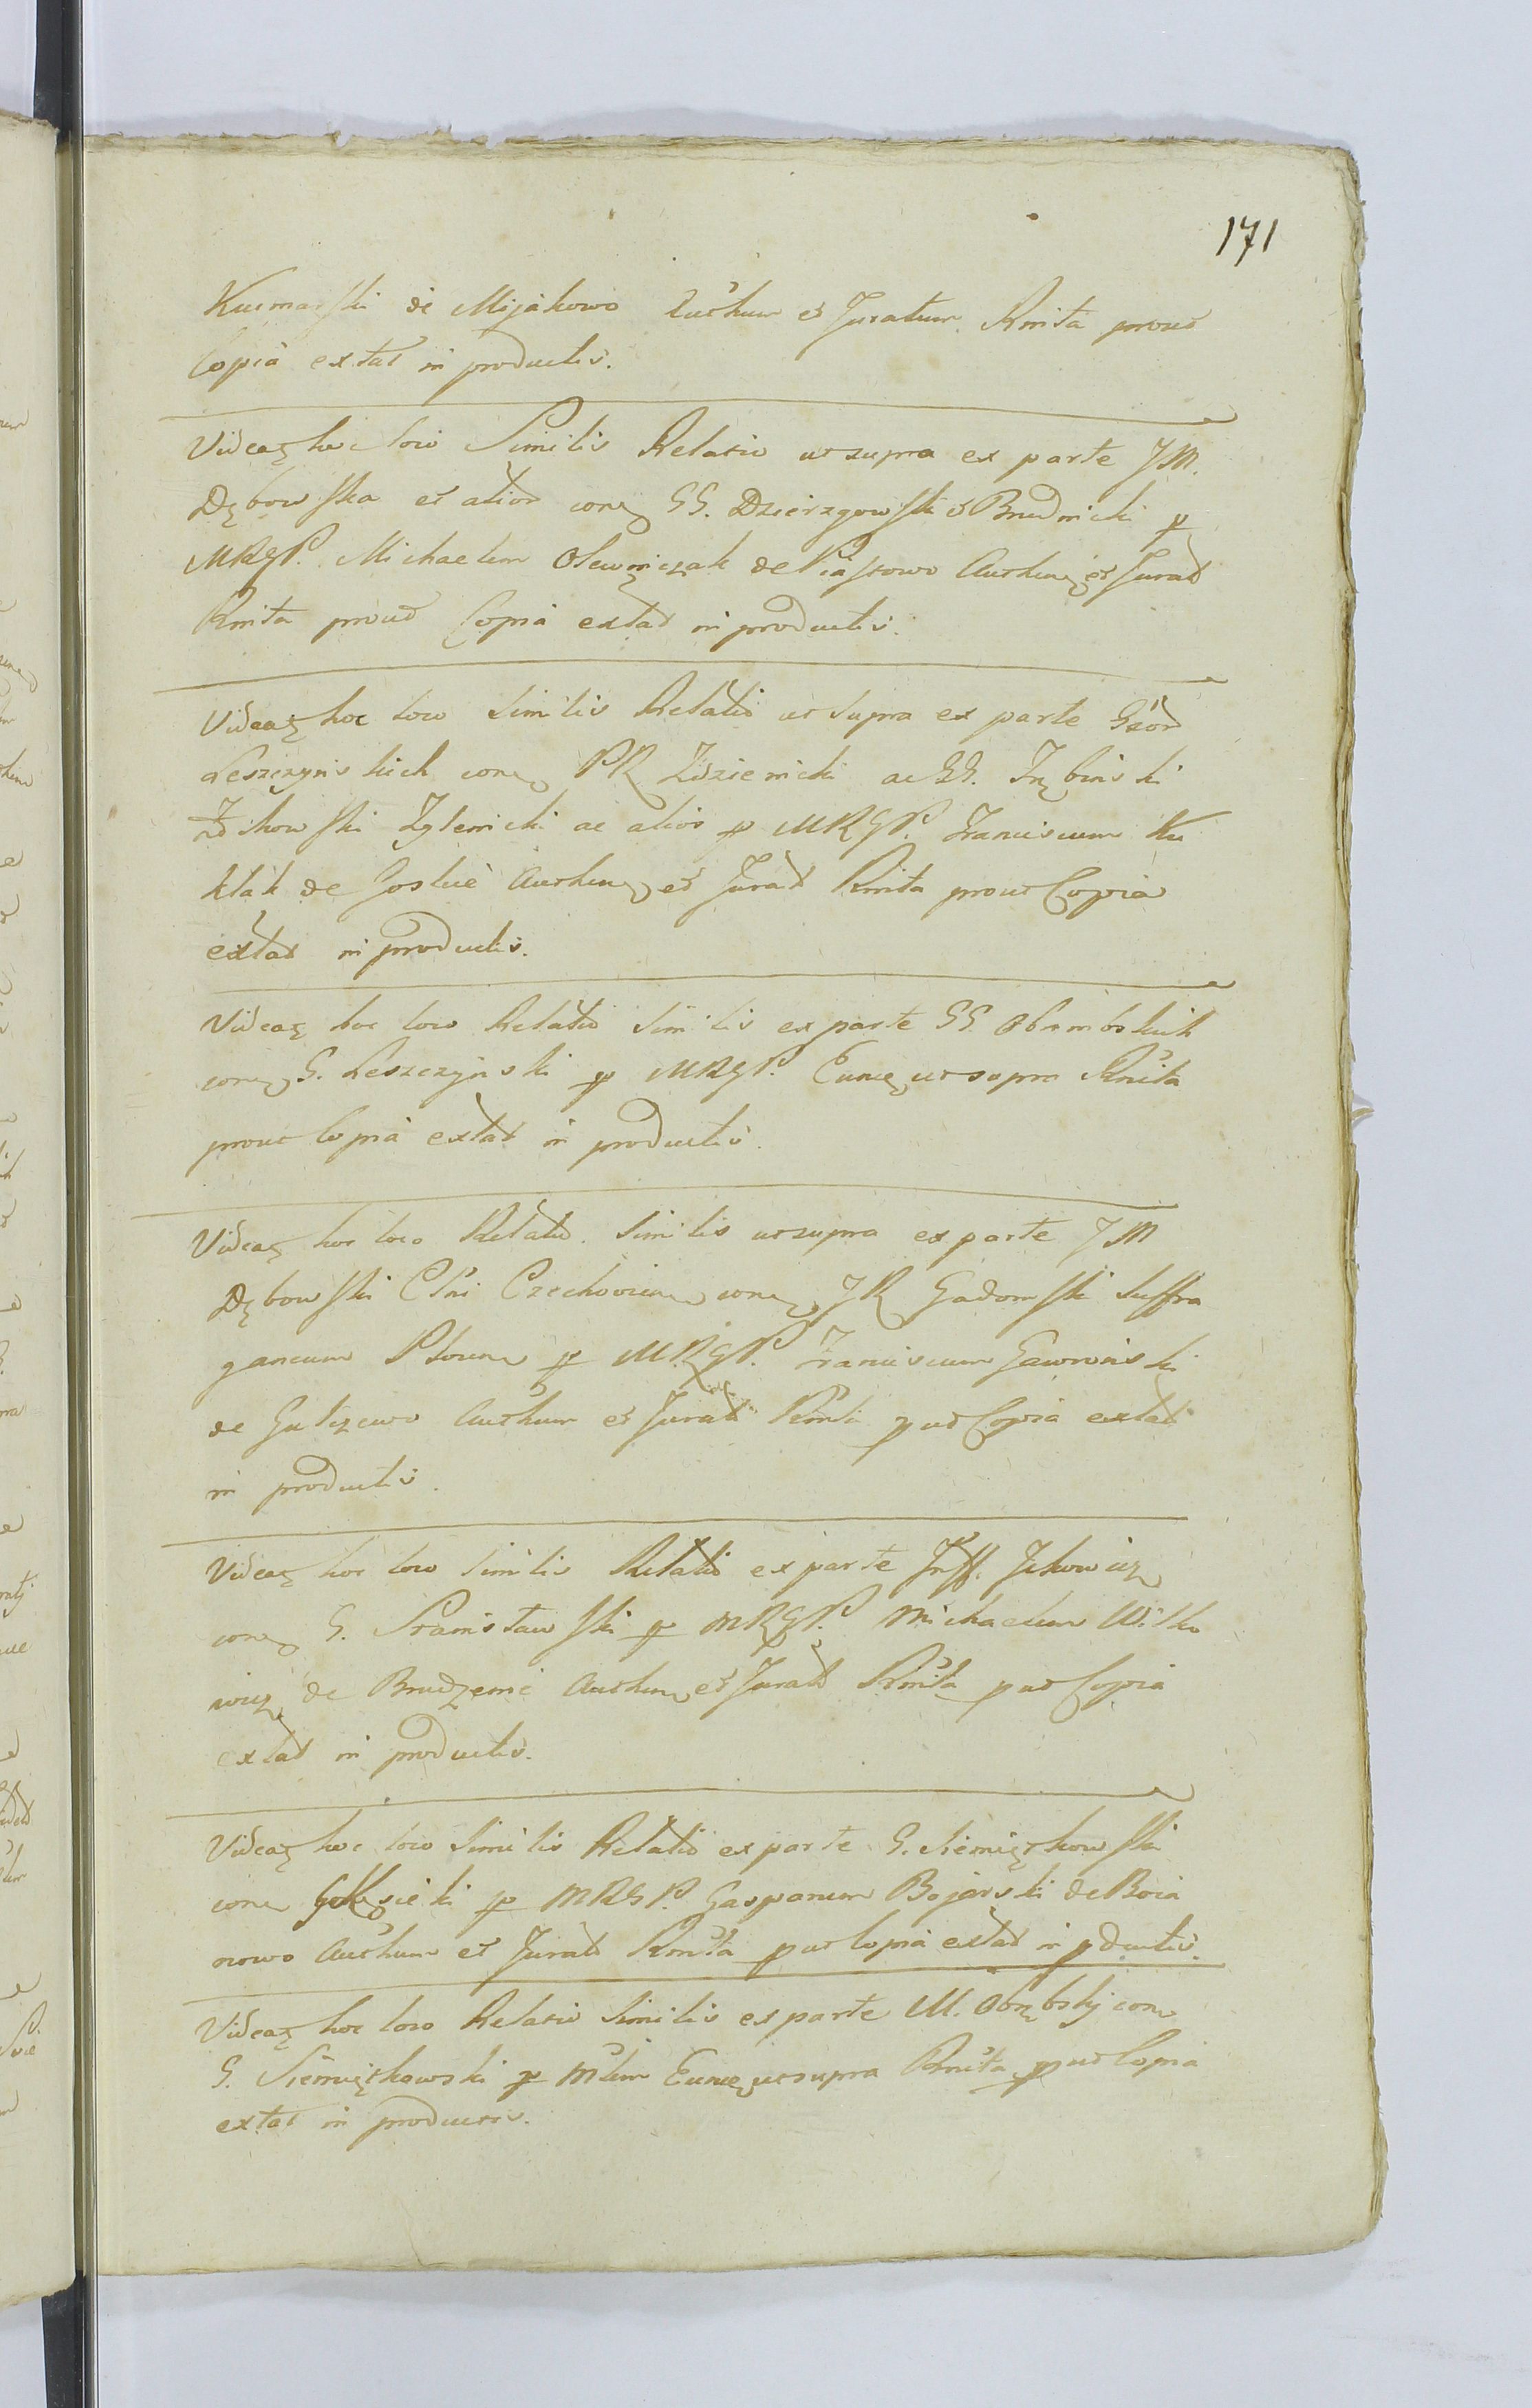 171
Kuemarski de Mijakowo Authum et Juratum Rnita prout
Copia extat in productis.
Videat hoc loco Similis Relatio ut supra ex parte JM.
Dębowska et alior con GG. Dzierzgowski et Brudnicki p
MRGP. Michaelem Olewniczak de Piastowo Authum et Jurat
Rnita prout Copia extat in productis.
Videat hoc loco Similis Relatio ut supra ex parte
Leszczynskich con PR Zdzienicki ac GG.
Zglenicki ac alios p MRGP. Franciscum Ku
klak de Goslice Authum et Jurat Rnita prout Copia
extat in productis.
Videat hoc loco Relatio Similis ex parte GG. Obrembskich
con G. Leszczynski p MRGP. Eunde ut supra Rnita
prout Copia extat in productis.
Videat hoc loco Relatio Similis ut supra ex parte JM
Dębowski Clni Czechovien con JR Gadomski Suffra
ganeum Plocen p MRGP. Franciscum Gawronski
de Gulczewo Authum et Jurat Rnita put Copia extat
in productis.
Videat hoc loco Similis Relatio ex parte
con G. Stanisławski p MRGP. Michaelem Witko
wicz de Brudzenie Authum et Jurat Rnita put Copia
extat in productis.
Videat hoc loco Similis Relatio ex parte G. Siemiątkowski
con p MRGP. Gasparum Bojarski de Boia
nowo Authum et Jurat Rnita put Copia extat in pductis.
Videat hoc loco Relatio Similis ex parte M. Obrębskj con
G. Siemiątkowski p Mlem Eunde ut supra Rnita put Copia
extat in productis.